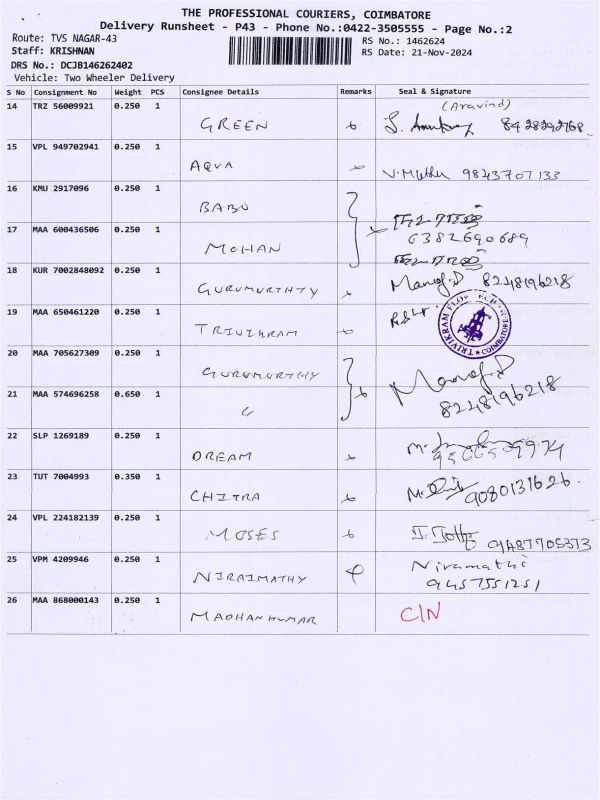 THE PROFESSIONAL COURIERS, COIMBATORE
Delivery Runsheet - P43 - Phone No.:0422-3505555 - Page No.:2
Route: TVS NAGAR-43
RS No.: 1462624
Staff: KRISHNAN
RS Date: 21-Nov-2024
DRS No.: DCJB146262402
Vehicle: Two Wheeler Delivery
S No Consignment No Weight PCS Consignee Details Remarks Seal & Signature
14 TRZ 56009921 0.250 1 GREEN (Aravind)
15 VPL 949702941 0.250 1 AQVA 9843707133
16 KMU 2917096 0.250 1 BABU
17 MAA 600436506 0.250 1 MOHAN 6382690689
18 KUR 7002848092 0.250 1 GURUMURTHY Manoj.D 8248196218
19 MAA 650461220 0.250 1 TRIVIKRAM
20 MAA 705627309 0.250 1 GURUMURTHY Manoj.D
21 MAA 574696258 0.650 1 8248196218
22 SLP 1269189 0.250 1 DREAM
23 TUT 7004993 0.350 1 CHITRA 9080131626.
24 VPL 224182139 0.250 1 MOSES
25 VPM 4209946 0.250 1 NIRAIMATHY Niramathi
26 MAA 868000143 0.250 1 MADHANKUMAR C/N